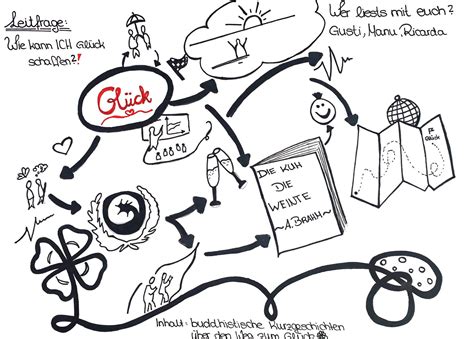 Leitfrage:
Wie kann ICH Glück
schaffen?!
Wer liest mit euch?
Gusti, Manu, Ricarda
Glück
DIE KUH
DIE
WEINTE
~A.BRAHM~
Glück
Inhalt: buddhistische Kurzgeschichten
über den Weg zum Glück